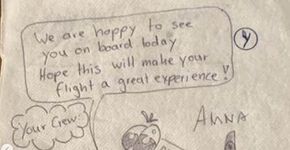 We are happy to see
you on board today
Hope this will make your
flight a great experience!
Your Crew!
ANNA